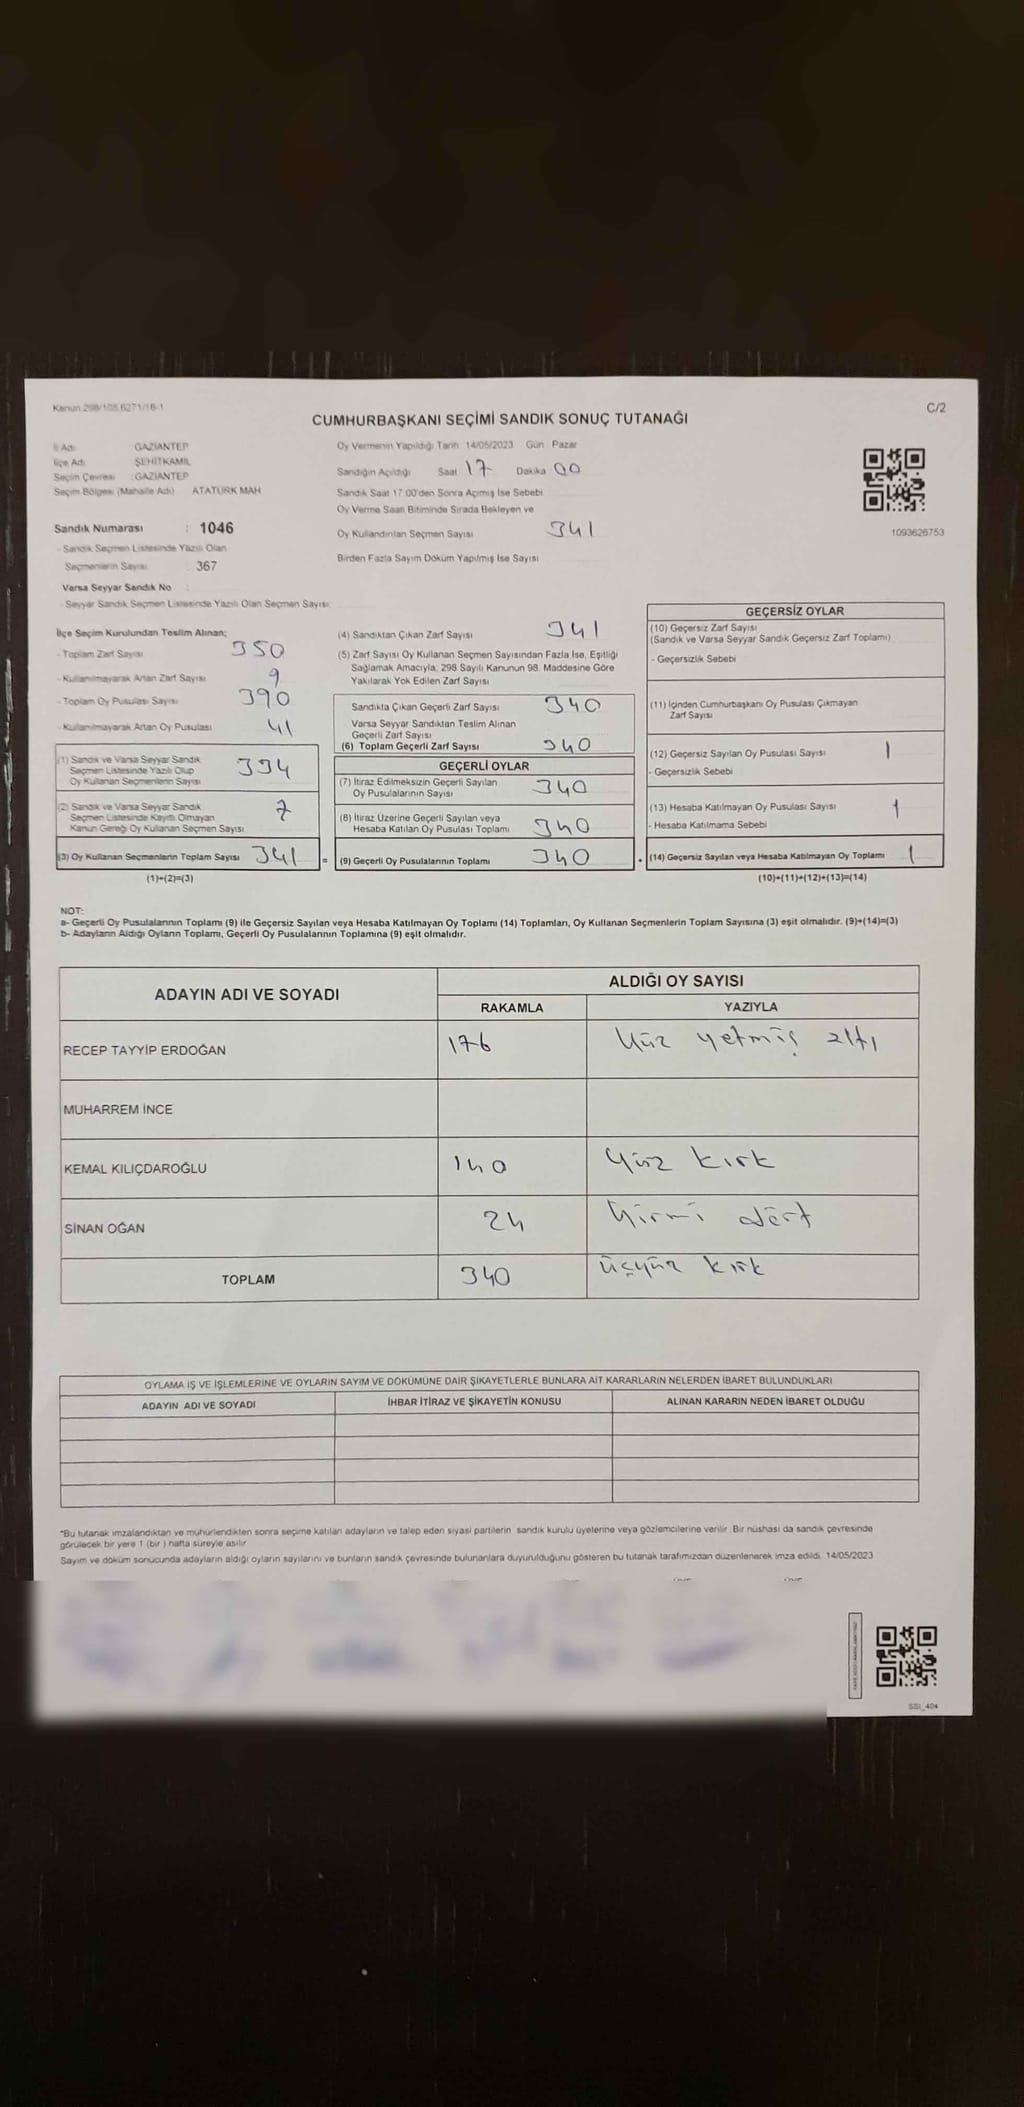 Kanun 298/105,6271/16-1
C/2
CUMHURBAŞKANI SEÇİMİ SANDIK SONUÇ TUTANAĞI
İl Adı : GAZİANTEP
İlçe Adı : ŞEHİTKAMİL
Seçim Çevresi : GAZİANTEP
Seçim Bölgesi (Mahalle Adı) ATATÜRK MAH.
Oy Vermenin Yapıldığı Tarih 14/05/2023 Gün Pazar
Sandığın Açıldığı Saat 17 Dakika 00
Sandık Saat 17:00'den Sonra Açmış İse Sebebi
Oy Verme Saati Bitiminde Sırada Bekleyen ve
Oy Kullandırılan Seçmen Sayısı 341
Birden Fazla Sayım Döküm Yapılmış İse Sayısı
1093626753
Sandık Numarası : 1046
- Sandık Seçmen Listesinde Yazılı Olan
Seçmenlerin Sayısı 367
Varsa Seyyar Sandık No :
- Seyyar Sandık Seçmen Listesinde Yazılı Olan Seçmen Sayısı
İlçe Seçim Kurulundan Teslim Alınan;
- Toplam Zarf Sayısı 350
- Kullanılmayarak Artan Zarf Sayısı 9
- Toplam Oy Pusulası Sayısı 390
- Kullanılmayarak Artan Oy Pusulası 41
(1) Sandık ve Varsa Seyyar Sandık
Seçmen Listesinde Yazılı Olup
Oy Kullanan Seçmenlerin Sayısı 334
(2) Sandık ve Varsa Seyyar Sandık
Seçmen Listesinde Kayıtlı Olmayan
Kanun Gereği Oy Kullanan Seçmen Sayısı 7
(3) Oy Kullanan Seçmenlerin Toplam Sayısı 341 =
(1)+(2)=(3)
(4) Sandıktan Çıkan Zarf Sayısı 341
(5) Zarf Sayısı Oy Kullanan Seçmen Sayısından Fazla İse, Eşitliği
Sağlamak Amacıyla, 298 Sayılı Kanunun 98. Maddesine Göre
Yakılarak Yok Edilen Zarf Sayısı
Sandıkta Çıkan Geçerli Zarf Sayısı 340
Varsa Seyyar Sandıktan Teslim Alınan
Geçerli Zarf Sayısı
(6) Toplam Geçerli Zarf Sayısı 340
GEÇERLİ OYLAR
(7) İtiraz Edilmeksizin Geçerli Sayılan
Oy Pusulalarının Sayısı 340
(8) İtiraz Üzerine Geçerli Sayılan veya
Hesaba Katılan Oy Pusulası Toplamı 340
(9) Geçerli Oy Pusulalarının Toplamı 340 +
GEÇERSİZ OYLAR
(10) Geçersiz Zarf Sayısı
(Sandık ve Varsa Seyyar Sandık Geçersiz Zarf Toplamı)
- Geçersizlik Sebebi
(11) İçinden Cumhurbaşkanı Oy Pusulası Çıkmayan
Zarf Sayısı
(12) Geçersiz Sayılan Oy Pusulası Sayısı 1
- Geçersizlik Sebebi
(13) Hesaba Katılmayan Oy Pusulası Sayısı 1
- Hesaba Katılmama Sebebi
(14) Geçersiz Sayılan veya Hesaba Katılmayan Oy Toplamı 1
(10)+(11)+(12)+(13)=(14)
NOT:
a- Geçerli Oy Pusulalarının Toplamı (9) ile Geçersiz Sayılan veya Hesaba Katılmayan Oy Toplamı (14) Toplamları, Oy Kullanan Seçmenlerin Toplam Sayısına (3) eşit olmalıdır. (9)+(14)=(3)
b- Adayların Aldığı Oyların Toplamı, Geçerli Oy Pusulalarının Toplamına (9) eşit olmalıdır.
ADAYIN ADI VE SOYADI
ALDIĞI OY SAYISI
RAKAMLA YAZIYLA
RECEP TAYYİP ERDOĞAN 176 Yüz yetmiş altı
MUHARREM İNCE
KEMAL KILIÇDAROĞLU 140 Yüz kırk
SİNAN OĞAN 24 Yirmi dört
TOPLAM 340 üçyüz kırk
OYLAMA İŞ VE İŞLEMLERİNE VE OYLARIN SAYIM VE DÖKÜMÜNE DAİR ŞİKAYETLERLE BUNLARA AİT KARARLARIN NELERDEN İBARET BULUNDUKLARI
ADAYIN ADI VE SOYADI İHBAR İTİRAZ VE ŞİKAYETİN KONUSU ALINAN KARARIN NEDEN İBARET OLDUĞU
*Bu tutanak imzalandıktan ve mühürlendikten sonra seçime katılan adayların ve talep eden siyasi partilerin sandık kurulu üyelerine veya gözlemcilerine verilir. Bir nüshası da sandık çevresinde
görülecek bir yere 1 (bir ) hafta süreyle asılır.
Sayım ve döküm sonucunda adayların aldığı oyların sayılarını ve bunların sandık çevresinde bulunanlara duyurulduğunu gösteren bu tutanak tarafımızdan düzenlenerek imza edildi. 14/05/2023
SSI_404